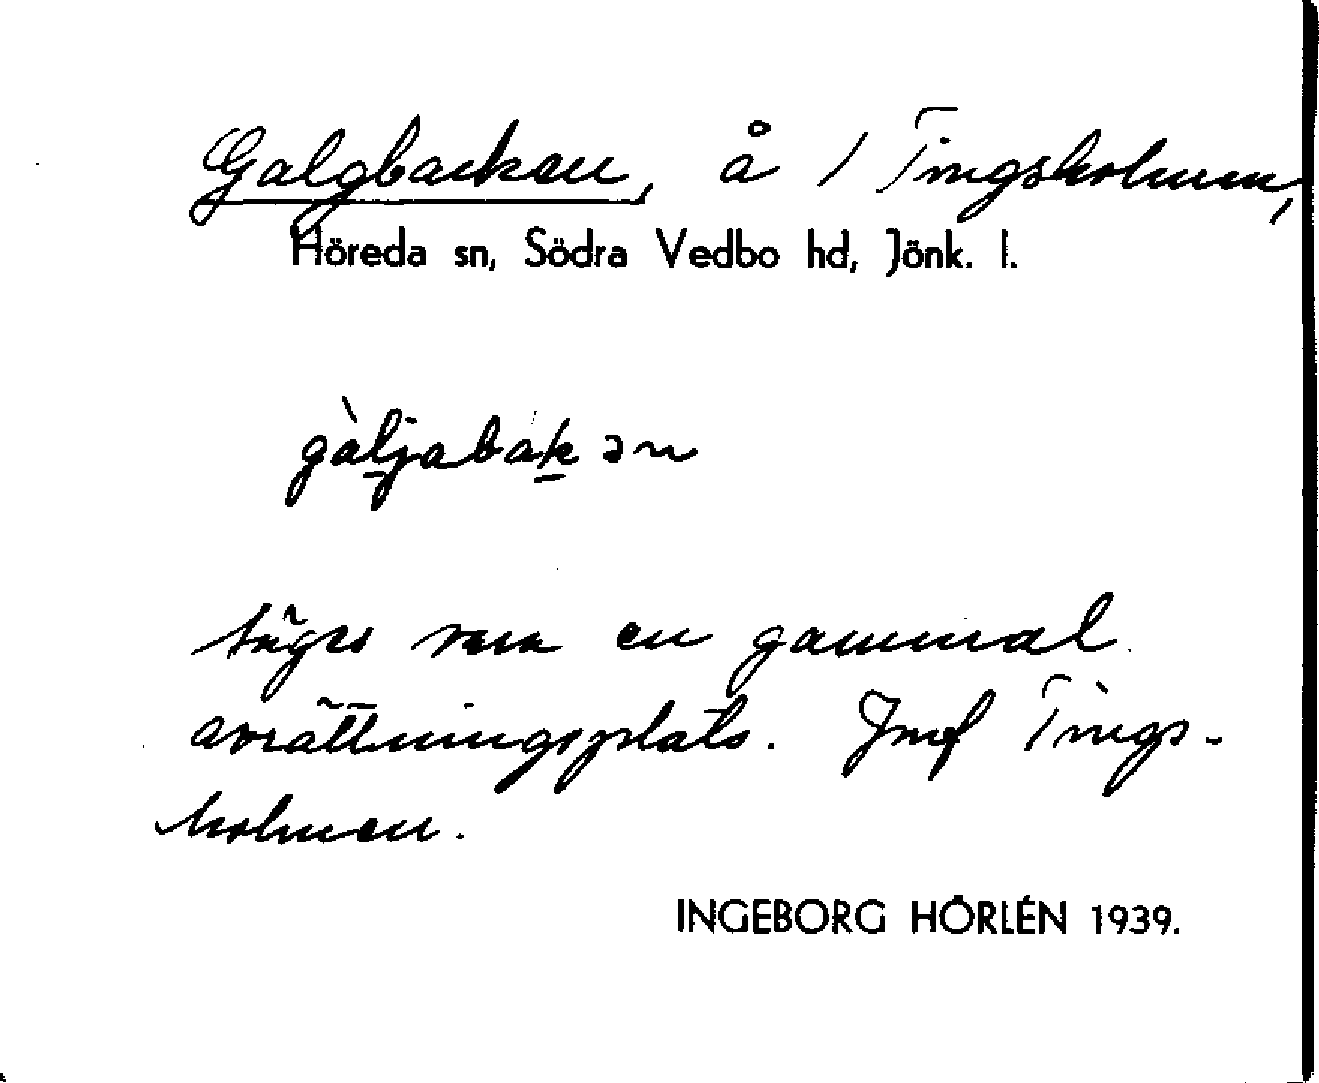 Galgbacken, å / Tingsholmen,
Höreda sn, Södra Vedbo hd, Jönk. l.
gàljabakən
säges vara en gammal
avrättningsplats. Jmf Tings-
holmen.
INGEBORG HÖRLÉN 1939.